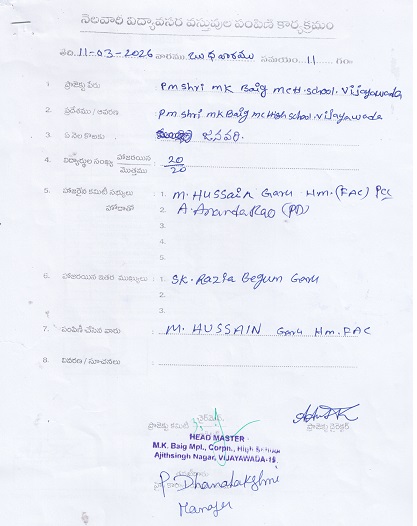 నెలవారి విద్యావసర వస్తువుల పంపిణి కార్యక్రమం
తేది. 11-03-2026 వారము బుధవారము సమయం 11 గం
1. ప్రాజెక్టు పేరు : PM shri MK Baig MCH. school. Vijayawada
2. ప్రదేశము / ఆవరణ : PM shri MK Baig MC High school. Vijayawada
3. ఏ నెల కొలకు : జనవరి.
4. విద్యార్థుల సంఖ్య హాజరయిన / మొత్తము : 20/20
5. హాజరైన కమిటీ సభ్యులు : 1. M. Hussain Garu HM. (FAC) PCC
హోదాతో 2. A. Ananda Rao (PD)
3.
4.
5.
6. హాజరయిన ఇతర ముఖ్యులు : 1. SK. Razia Begum Garu
2.
3.
7. పంపిణీ చేసిన వారు : M. HUSSAIN Garu HM. FAC
8. వివరణ / సూచనలు :
ఛైర్మెన్
ప్రాజెక్టు కమిటీ
ప్రాజెక్టు డైరెక్టర్
HEAD MASTER
M.K. Baig Mpl., Corpn., High School
Ajithsingh Nagar, VIJAYAWADA-15
P. Dhanalakshmi
Manager